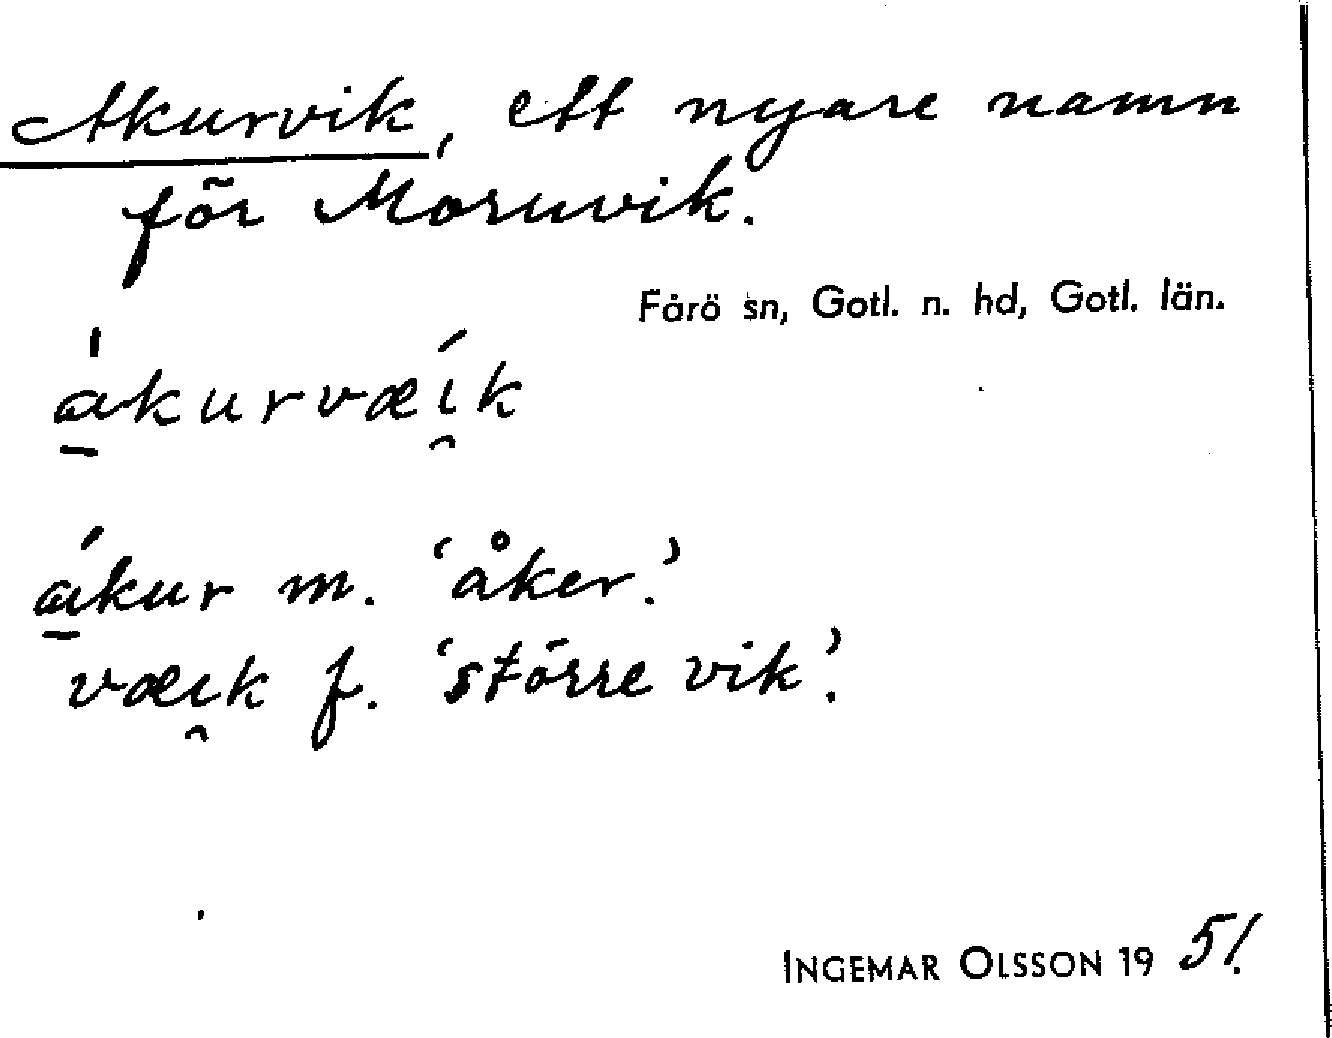 Akurvik, ett nyare namn
för Moruvik.
Fårö sn, Gotl. n. hd, Gotl. län.
a̱̍kurvæí̯k
á̱kur m. 'åker.'
væi̯k f. 'större vik'.
INGEMAR OLSSON 19 51.